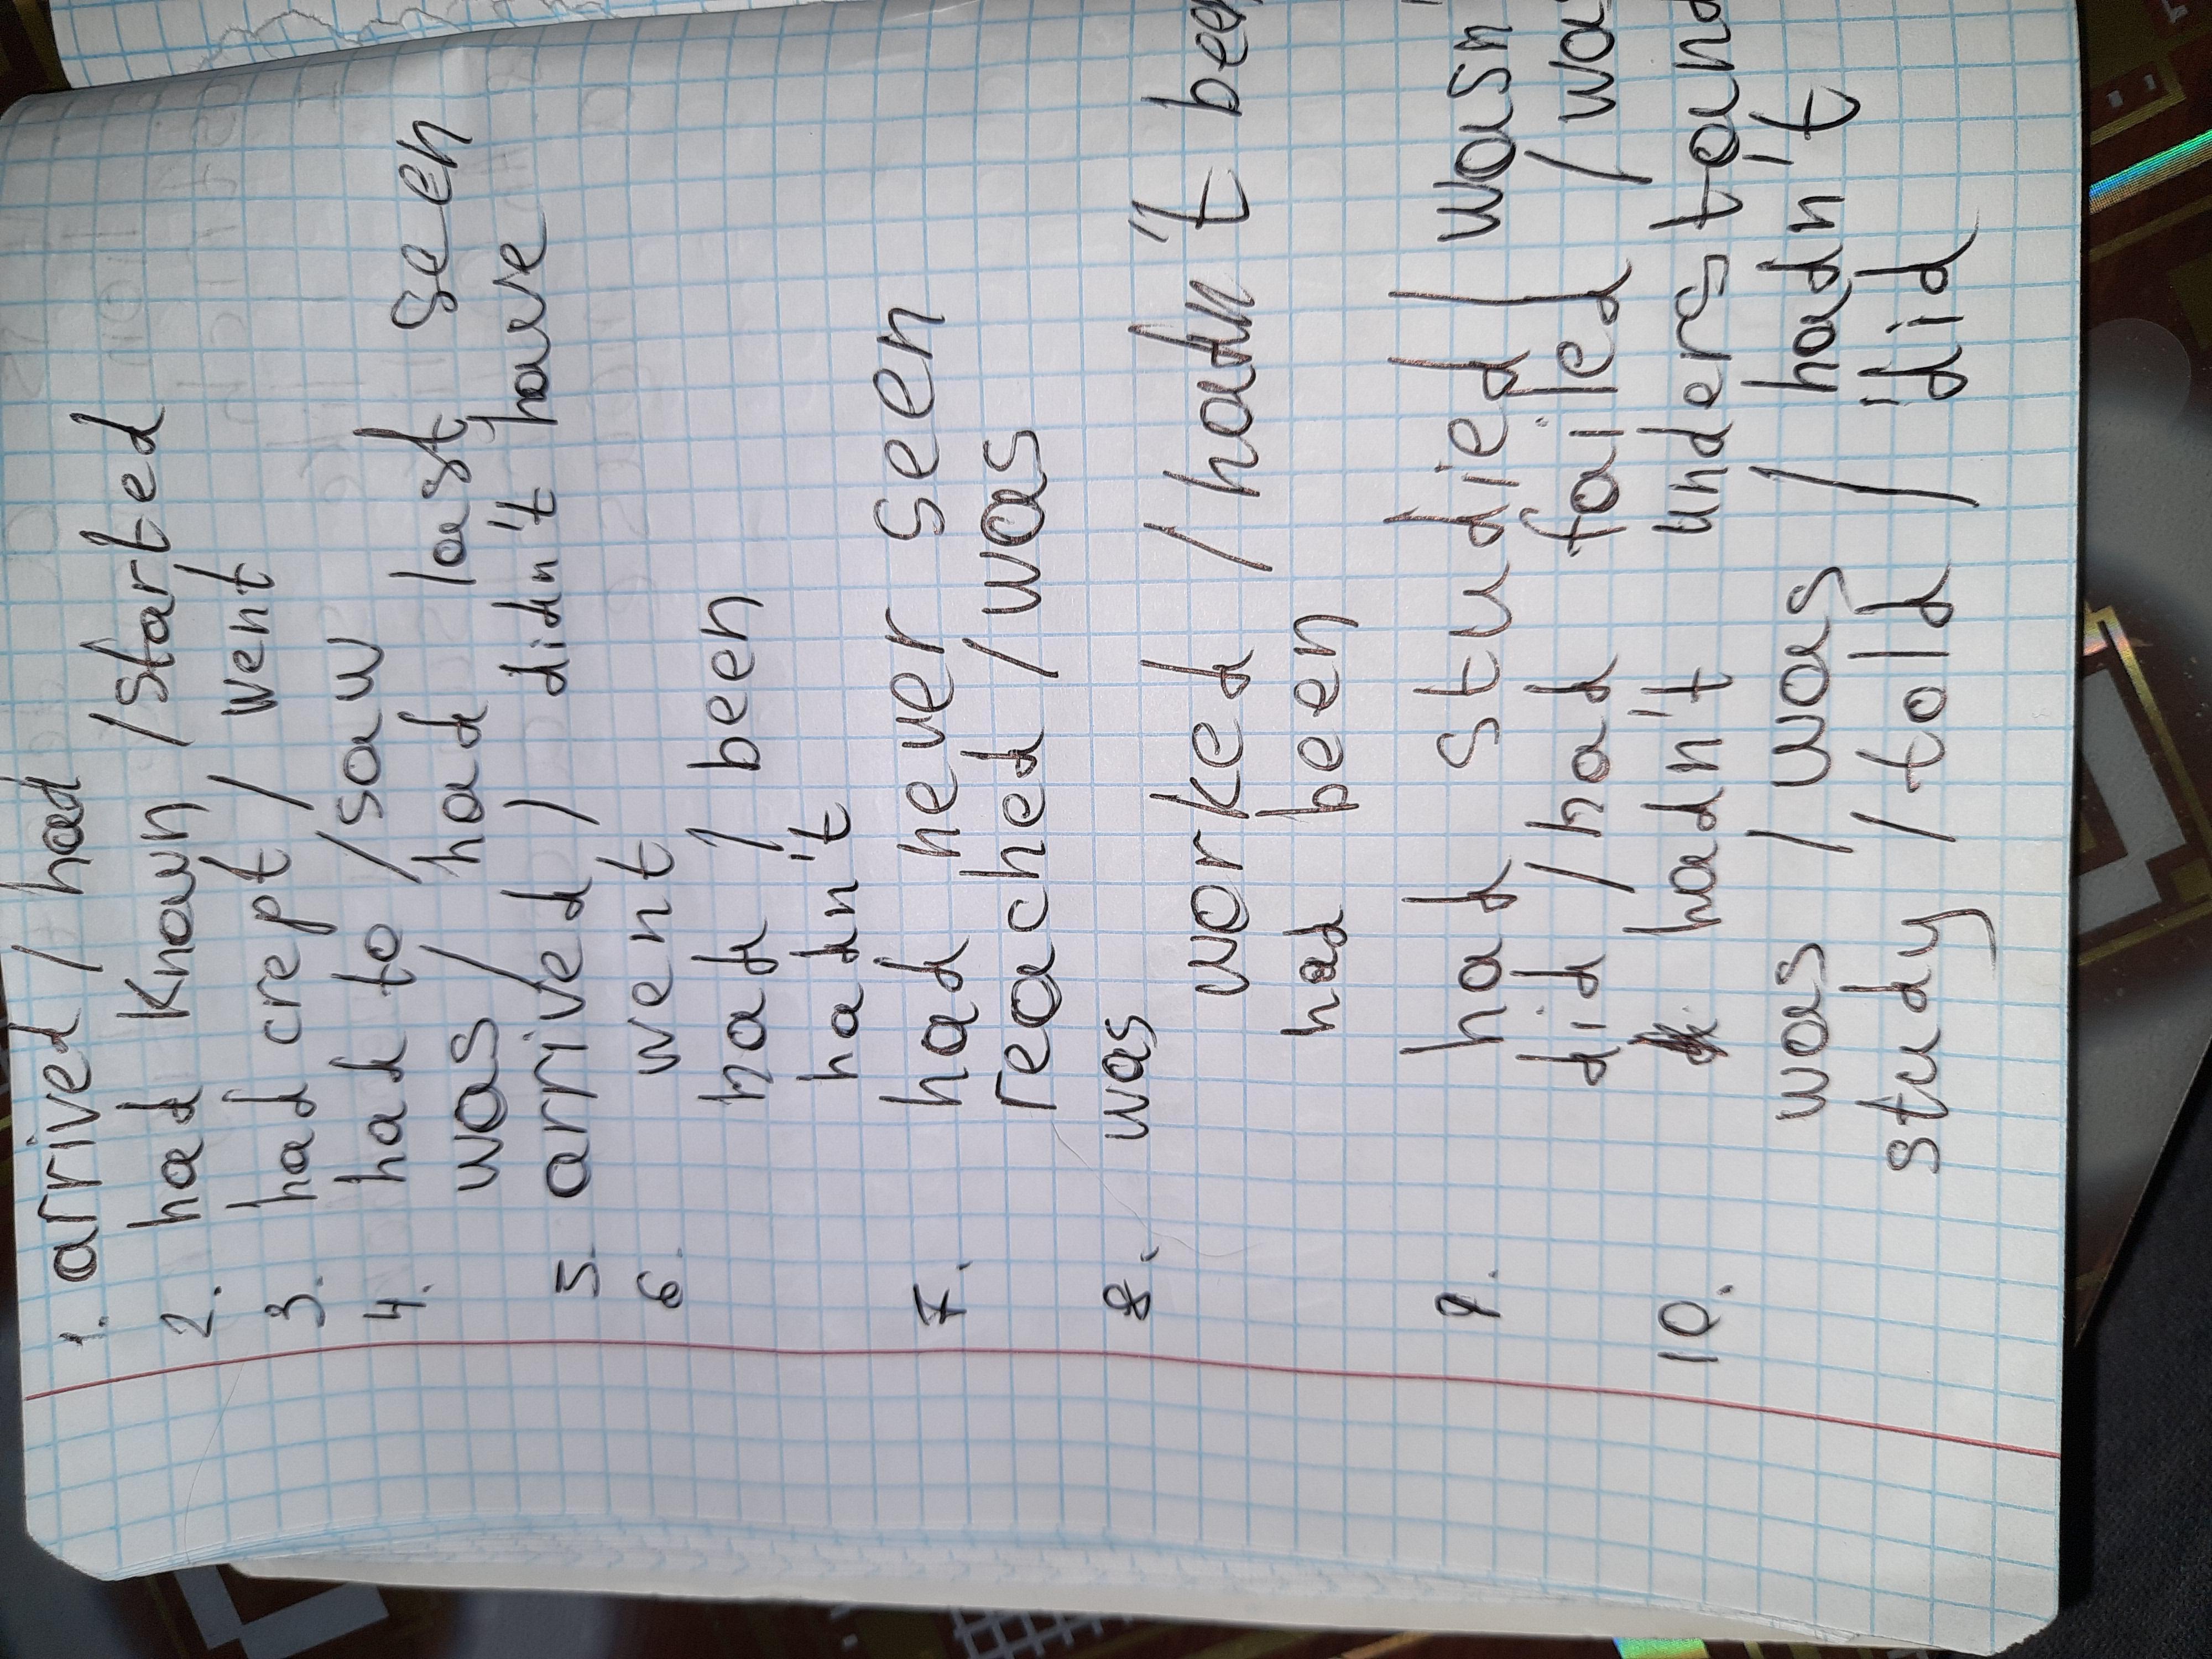 1. arrived / had
2. had known / started
3. had crept / went
4. had to / saw
was / had last seen
5. arrived / didn't have
6. went
had / been
hadn't
7. had never seen
reached / was
8. was
worked / hadn't been
had been
9. had studied / wasn't
did / had failed /
10. hadn't understand
was / was / hadn't
study / told / did